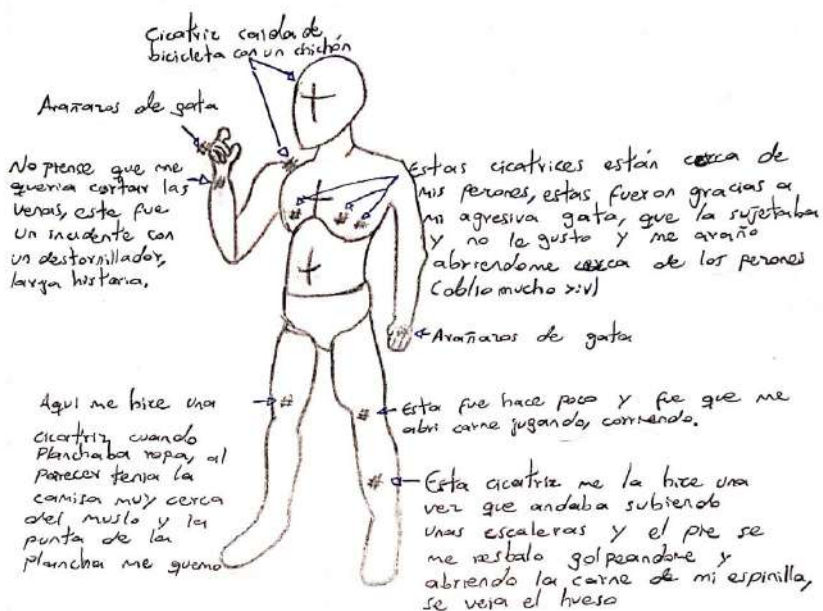 Cicatriz caida de
bicicleta con un chichón
Arañazos de gata
No piense que me
queria cortar las
venas, este fue
un incidente con
un destornillador,
larga historia.
Estas cicatrices están cerca de
mis pezones, estas fueron gracias a
mi agresiva gata, que la sujetaba
y no le gusto y me araño
abriendome cerca de los pezones
(oblio mucho :v)
Arañazos de gata
Aqui me hize una
cicatriz cuando
planchaba ropa, al
parecer tenia la
camisa muy cerca
del muslo y la
punta de la
plancha me quemo
Esta fue hace poco y fue que me
abri carne jugando, corriendo.
Esta cicatriz me la hize una
vez que andaba subiendo
unas escaleras y el pie se
me resbalo golpeandome y
abriendo la carne de mi espinilla,
se veia el hueso